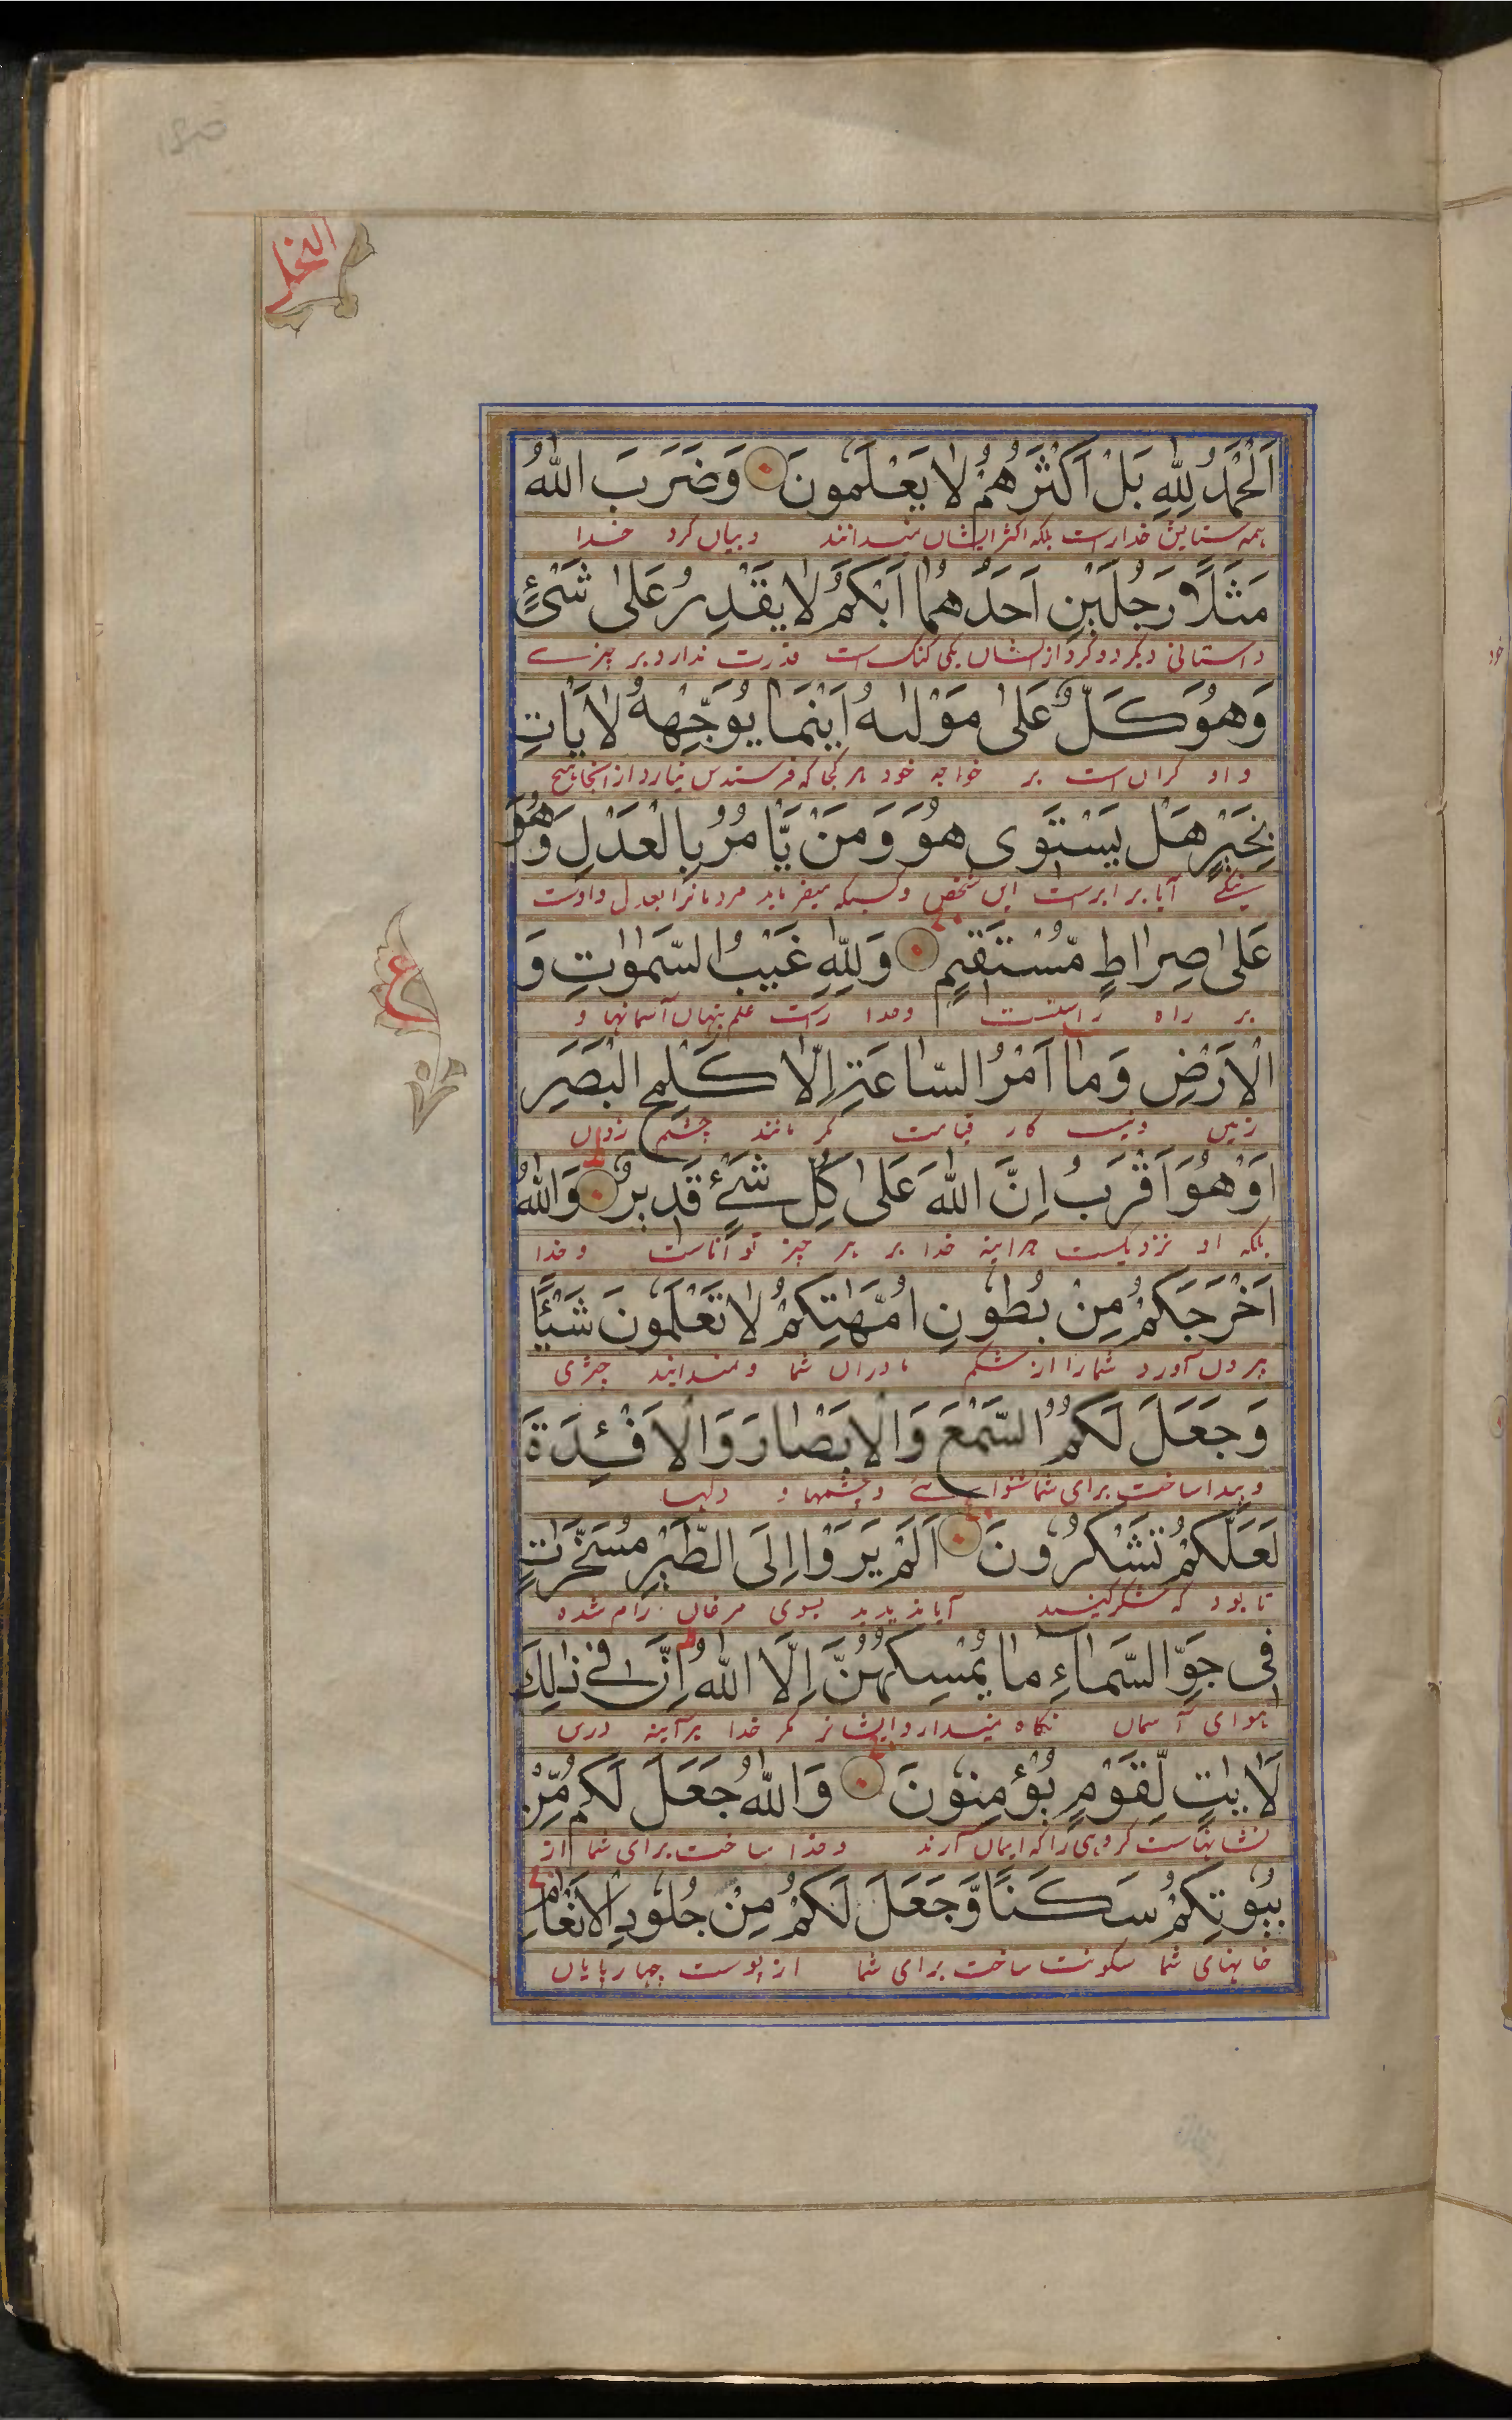 النحل
اَلْحَمْدُ لِلّٰهِ بَلْ اَكْثَرُهُمْ لَا يَعْلَمُونَ وَضَرَبَ اللّٰهُ
همه ستایش خدارست بلکه اکثر ایشان نمیدانند و بیان کرد خدا
مَثَلًا رَجُلَيْنِ اَحَدُهُمَا اَبْكَمُ لَا يَقْدِرُ عَلٰى شَىْءٍ
داستانی دیگر دو مرد از ایشان یکی گنگ است قدرت ندارد بر چیزے
وَهُوَ كَلٌّ عَلٰى مَوْلٰىهُ اَيْنَمَا يُوَجِّهْهُ لَا يَاْتِ
و او گران است بر خواجه خود هر کجا که فرستدش نیارد از آنجا هیچ
بِخَيْرٍ هَلْ يَسْتَوٖى هُوَ وَمَنْ يَّاْمُرُ بِالْعَدْلِ وَهُوَ
نیکے آیا برابرست این شخص و کسیکه میفرماید مردمانرا بعدل و اوست
عَلٰى صِرَاطٍ مُّسْتَقِيمٍ وَلِلّٰهِ غَيْبُ السَّمٰوٰتِ وَ
بر راه راست و خدا راست علم پنهان آسمانها و
ع
الْاَرْضِ وَمَا اَمْرُ السَّاعَةِ اِلَّا كَلَمْحِ الْبَصَرِ
زمین و نیست کار قیامت مگر مانند چشم زدن
اَوْ هُوَ اَقْرَبُ اِنَّ اللّٰهَ عَلٰى كُلِّ شَىْءٍ قَدِيرٌ وَاللّٰهُ
بلکه او نزدیکست هراینه خدا بر هر چیز تواناست و خدا
اَخْرَجَكُمْ مِنْ بُطُونِ اُمَّهٰتِكُمْ لَا تَعْلَمُونَ شَيْئًا
بیرون آورد شمارا از شکم مادران شما و نمیدانید چیزی
وَجَعَلَ لَكُمُ السَّمْعَ وَالْاَبْصَارَ وَالْاَفْئِدَةَ
و پیدا ساخت برای شما شنوائے و چشمها و دلها
لَعَلَّكُمْ تَشْكُرُونَ اَلَمْ يَرَوْا اِلَى الطَّيْرِ مُسَخَّرٰتٍ
تا بود که شکر کنید آیا ندیدید بسوی مرغان رام شده
فِى جَوِّ السَّمَاءِ مَا يُمْسِكُهُنَّ اِلَّا اللّٰهُ اِنَّ فِى ذٰلِكَ
هوای آسمان نگاه نمیدارد ایشانرا مگر خدا هرآینه درین
لَاٰيٰتٍ لِّقَوْمٍ يُؤْمِنُونَ وَاللّٰهُ جَعَلَ لَكُمْ مِّنْ
نشانهاست گروهی را که ایمان آرند و خدا ساخت برای شما از
بُيُوتِكُمْ سَكَنًا وَّجَعَلَ لَكُمْ مِنْ جُلُودِ الْاَنْعَامِ
خانهای شما سکونت ساخت برای شما از پوست چهارپایان